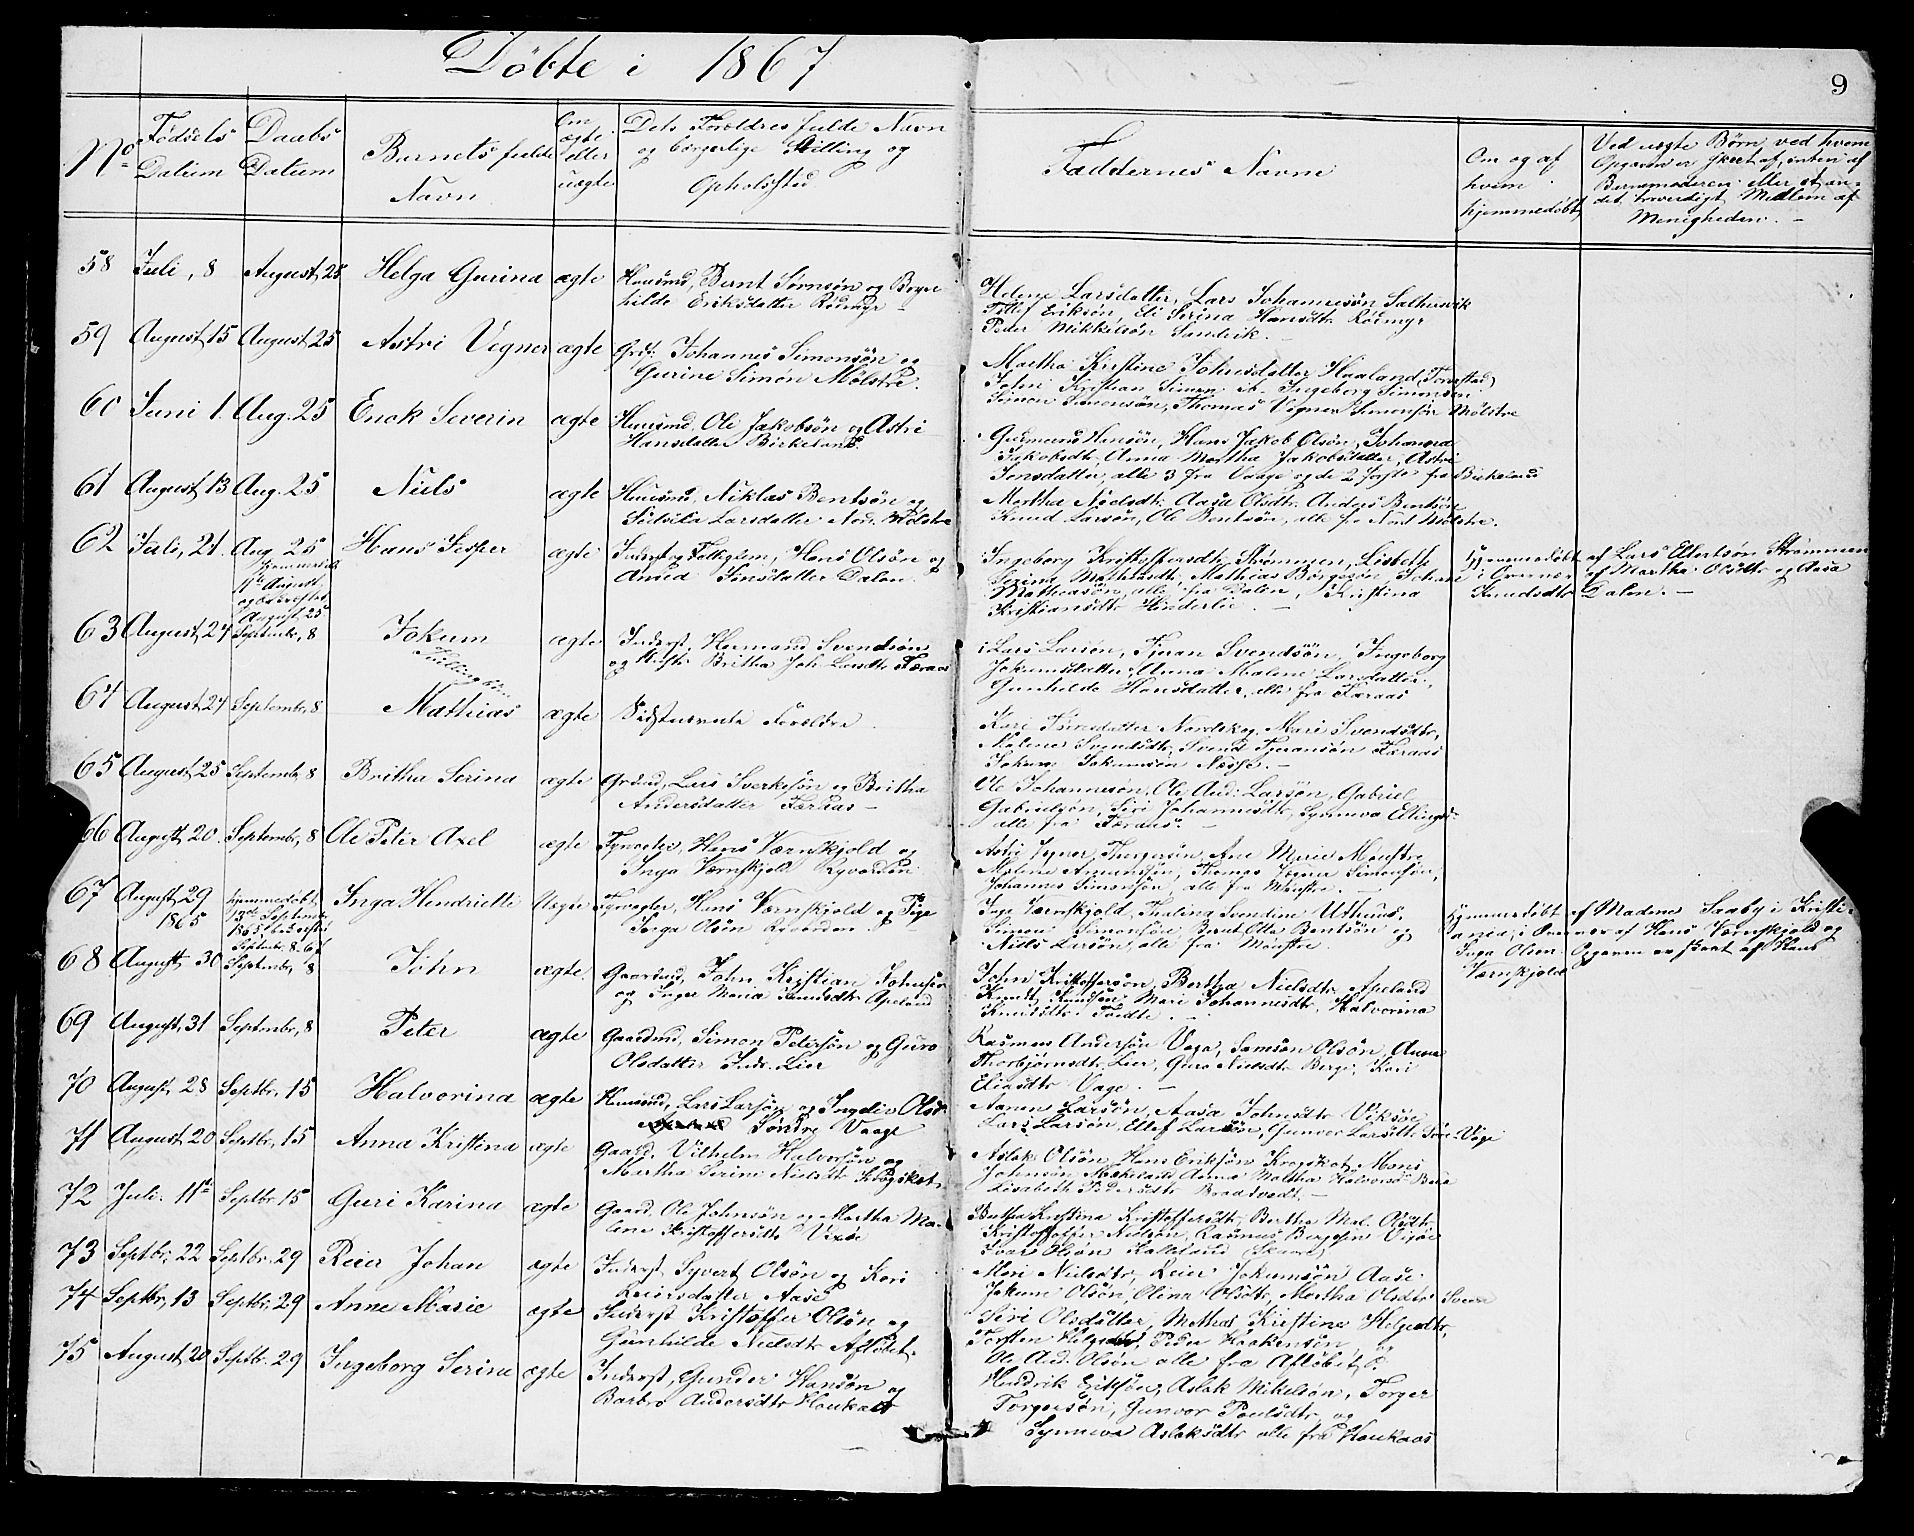 Døbte i 1867
9
No
Fødsels Datum
Daabs Datum
Barnets fulde Navn
Om ægte eller uægte
Dets Forældres fulde Navn og borgerlige Stilling og Opholdssted
Faddernes Navne
Om og af hvem hjemmedøbt
Ved uægte Børn, ved hvem Opgaven er skeet af, enten af Barnemoderen eller et andet troværdigt Medlem af Menigheden.
58 Juli, 8 August, 25 Helga Gurina ægte Huusmd, Bernt Sørnsøn og Borg-
hilde Eriksdatter Rødmyr
Helene Larsdatter, Lars Johannesøn Salthusvik
Tollef Eriksøn, Eli Serina Hansdtr Rødmyr
Peder Mikkelsøn Sandvik.
59 August, 15 August 25 Astri Vegner ægte Grdb. Johannes Simonsøn og
Gurine Simon Mølstre.
Martha Kirstine Johnsdatter Haaland
John Kristian Simon Ingeborg Simonsen
Simon Simonsøn, Thomas Vegner Simonsøn Mølstre
60 Juni 1. Aug. 25 Enok Severin ægte Huusmd. Ole Jakobsøn og Astri
Hansdatter Birkeland.
Gudmund Hansøn, Hans Jakob Olsøn, Johanna
Jakobsdtr. Anna Martha Jakobsdatter, Astri
Jensdatter, alle 3 fra Vaage og de 2 sidste fra Birkeland
61 August 13 Aug. 25 Niels ægte Huusmd, Niklas Bentsøn og
Larsdatter Nord. Mølstre
Martha Nielsdtr. Aasa Olsdtr. Anders Bentsøn
Knud Larsøn, Ole Bentsøn, alle fra Nord Mølstre.
62 Juli, 21. Aug. 25 Hans Jesper ægte
August, 25
Inderst og Hans Olsøn og
Dalen
Ingeborg Kristoffersdtr Strømmen, Lisbeth
Serina Mathiasdtr, Mathias Børgesøn, Johan
Mathiasøn, alle fra Dalen, Kristina
Kristiansdtr Hinderlie
Hjemmedøbt af Lars Ellertsøn Strømmen
i Overvær af Martha Olsdtr og Aasa
Knudsdtr Dalen.
63 August, 27 Septembr, 8 Jokum ægte Inderst, Hermand Svendsøn
og Hustr. Britha Joh. Larsdtr Færaas
Tvillingbørn
Lars Larsøn, Tjeran Svendsøn, Ingeborg
Jokumsdatter, Anna Malene Larsdatter,
Gunhilde Hansdatter, alle fra Færaas
64 August, 27 Septembr, 8 Mathias ægte Sidstnævnte Forældre.
Kari Nordskog, Mari Svendsdtr,
Malene Svendsdtr, Svend Tjeransøn Færaas
Johan Jokumsøn Næsse.
65 August, 25 Septembr, 8 Britha Serina ægte Grdmd, Lars Sverkesøn og Britha
Andersdatter Færaas
Ole Johannesøn, Ole And. Larsøn, Gabriel
Gabrielsøn, Siri Johannesdtr, Synneva Ellingsdtr
alle fra Færaas.
66 August, 20. Septembr, 8 Ole Peter Axel ægte Fyrvogter, Hans Værnskjold og
Inga Værnskjold Ryvarden
Astri Vegner, Thorgersøn, Ane Marie Mønstre
Malene Amundsøn, Thomas Vegner Simonsøn,
Johannes Simonsøn, alle fra Mønstre.
67 August, 29 1865 Hjemmedøbt
13de Septembr
1865
Septembr 8 67
Inga Hendriette Uægte Fyrvogter, Hans Værnskjold og Pige
Inga Olsøn Ryvarden
Inga Værnskjold, Thalina Svendine
Simon Simonsøn Bernt Otto Bentsøn og
Niels Larsøn, alle fra Mønstre.
Hjemmedøbt af Madame Saaby i Kristi-
ania i Overvær af Hans Værnskjold og
Inga Olsen. Opgaven er skeet af Hans
Værnskjold
68 August 30 Septembr, 8 John ægte. Gaardmd, John Kristian Johnsøn
og Inger Maria Knudsdtr Apeland
John Kristoffersøn, Bertha Nielsdtr, Apeland
Knudt Knudsøn, Mari Johannesdtr, Halvorina
Knudsdtr
69 August, 31 Septembr, 8 Peter ægte Gaardmd, Simon Petersøn og Guro
Olsdatter Indr. Lier
Rasmus Andersøn Vaga, Samson Olsøn, Anna
Thorbjørnsdtr Lier, Guro Nielsdtr Berge, Kari
Eliasdtr Vage.
70 August 28 Septbr. 15 Halvorina ægte Huusmd, Lars Larsøn og Ingeliv Olsdtr
Søndre Vaage
Aanen Larsøn, Aasa Johnsdtr Viksøe
Lars Larsøn, Ellef Larsøn, Gunvor Larsdtr Søre Vage
71 August 20 Septbr. 15 Anna Kristina ægte Gaard. Vilhelm Halvorsøn og
Martha Serine Nielsdtr Krogskot
Aslak Olsøn, Hans Eriksøn Krogskot, Mons
Johnsøn Mækeland Anna Maltha Halvorsdtr Bua
Lisabeth Pedersdtr Braatvedt.
72 Juli. 11te Septbr 15 Guri Karina ægte Gaard. Ole Johnsøn og Martha Ma-
lene Kristoffersdtr Vixøe
Bertha Kristina Kristoffersdtr, Bertha Mal. Olsdtr
Kristoffer Nielsøn, Rasmus Vixøe
Ivar Olsøn
73 Septbr, 22 Septbr, 29 Reier Johan ægte Inderst, Syvert Olsøn og Kari
Reiersdatter Aase
Mari Nielsdtr, Reier Jokumsøn Aase
Jokum Olsøn, Olina Olsdtr, Martha Olsdtr
74 Septbr, 13 Septbr, 29 Anne Marie ægte Inderst Kristoffer Olsøn og
Gunhilde Nielsdtr Afløbet.
Siri Olsdatter, Mathea Kristine Helgesdtr,
Torsten Peder Haakensøn, og
Ole And. Olsøn alle fra Afløbet.
75 August 20 Septbr. 29 Ingeborg Serina ægte Inderst, Gunder Hansøn og
Barbro Andersdtr Haukaas
Hendrik Eriksøn, Aslak Mikelsøn, Torger
Torgersøn, Gunvor Paulsdtr, og
Synneva Aslaksdtr alle fra Haukaas